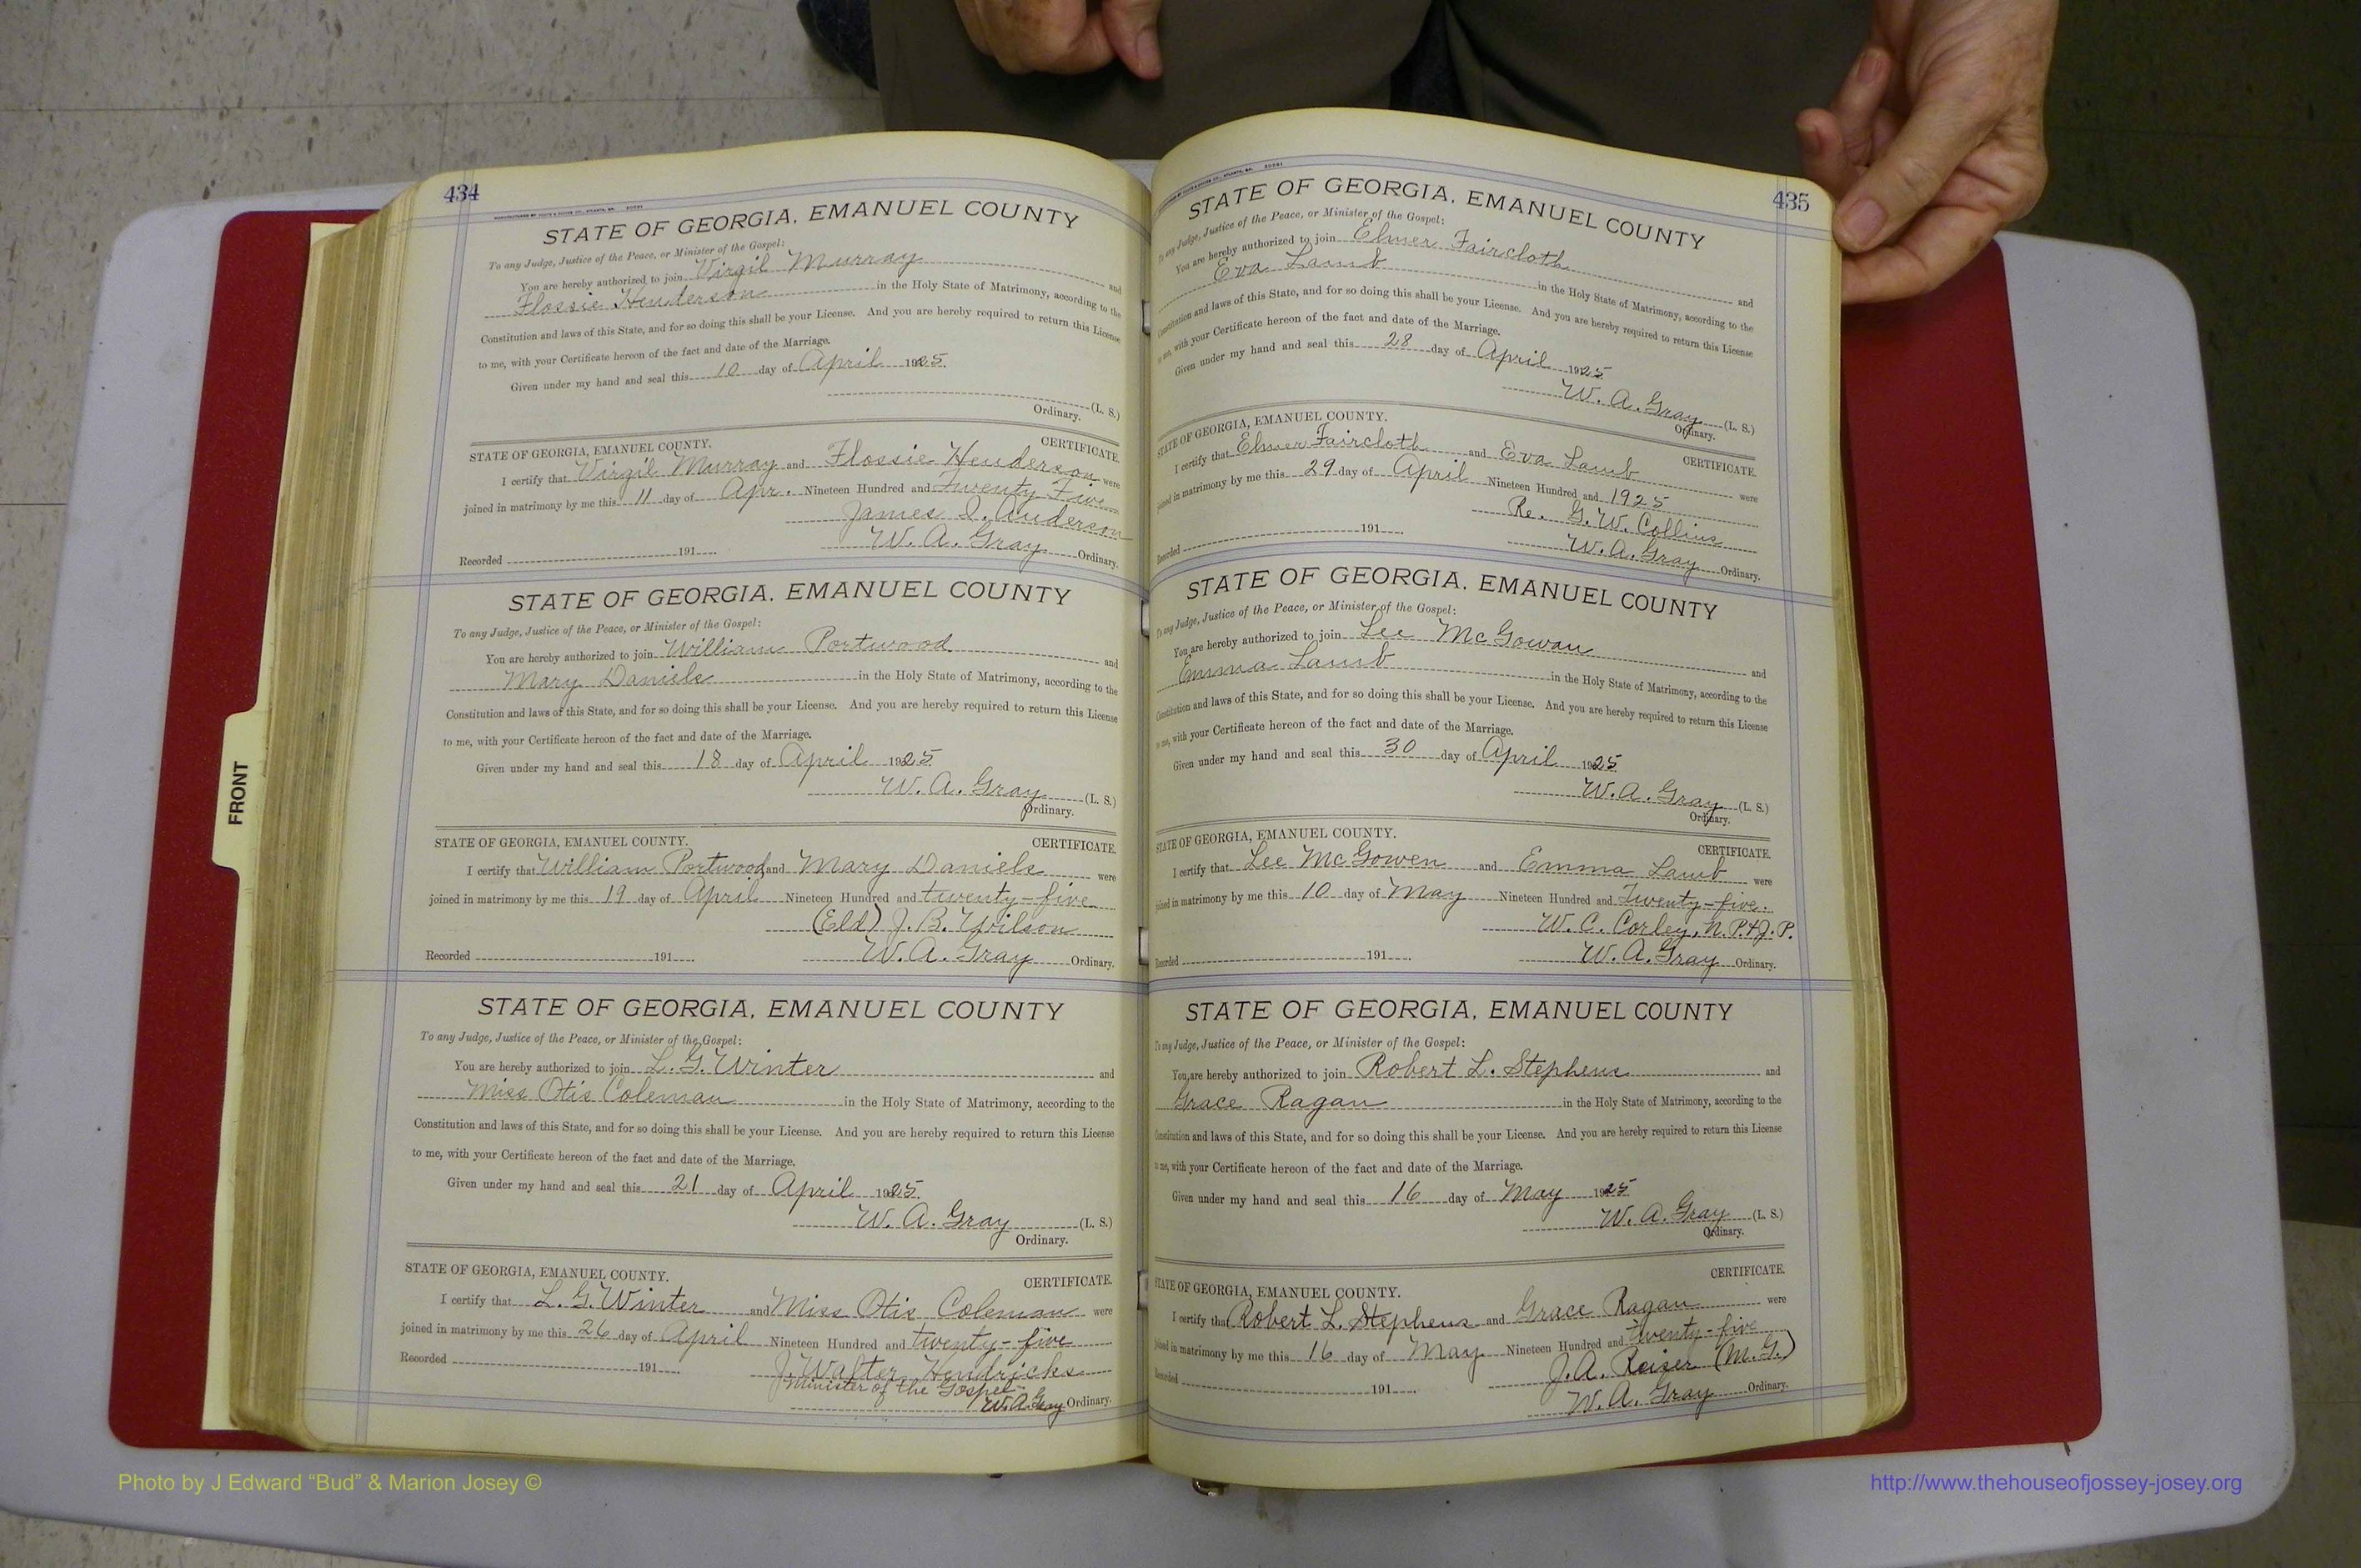 434
STATE OF GEORGIA, EMANUEL COUNTY
To any Judge, Justice of the Peace, or Minister of the Gospel:
You are hereby authorized to join Virgil Murray and
Flossie Henderson in the Holy State of Matrimony, according to the
Constitution and laws of this State, and for so doing this shall be your License. And you are hereby required to return this License
to me, with your Certificate hereon of the fact and date of the Marriage.
Given under my hand and seal this 10 day of April 1925.
(L. S.)
Ordinary.
STATE OF GEORGIA, EMANUEL COUNTY. CERTIFICATE.
I certify that Virgil Murray and Flossie Henderson were
joined in matrimony by me this 11 day of Apr. Nineteen Hundred and Twenty Five
James I. Anderson
Recorded 191 W. A. Gray Ordinary.
STATE OF GEORGIA, EMANUEL COUNTY
To any Judge, Justice of the Peace, or Minister of the Gospel:
You are hereby authorized to join William Portwood and
Mary Daniels in the Holy State of Matrimony, according to the
Constitution and laws of this State, and for so doing this shall be your License. And you are hereby required to return this License
to me, with your Certificate hereon of the fact and date of the Marriage.
Given under my hand and seal this 18 day of April 1925.
W. A. Gray (L. S.)
Ordinary.
STATE OF GEORGIA, EMANUEL COUNTY. CERTIFICATE.
I certify that William Portwood and Mary Daniels were
joined in matrimony by me this 19 day of April Nineteen Hundred and twenty-five
(Eld) J. B. Wilson
Recorded 191 W. A. Gray Ordinary.
STATE OF GEORGIA, EMANUEL COUNTY
To any Judge, Justice of the Peace, or Minister of the Gospel:
You are hereby authorized to join L. G. Winter and
Miss Otis Coleman in the Holy State of Matrimony, according to the
Constitution and laws of this State, and for so doing this shall be your License. And you are hereby required to return this License
to me, with your Certificate hereon of the fact and date of the Marriage.
Given under my hand and seal this 21 day of April 1925.
W. A. Gray (L. S.)
Ordinary.
STATE OF GEORGIA, EMANUEL COUNTY. CERTIFICATE.
I certify that L. G. Winter and Miss Otis Coleman were
joined in matrimony by me this 26 day of April Nineteen Hundred and twenty-five
Recorded 191 J. Walter Hendricks
Minister of the Gospel
W. A. Gray Ordinary.
435
STATE OF GEORGIA, EMANUEL COUNTY
To any Judge, Justice of the Peace, or Minister of the Gospel:
You are hereby authorized to join Elmer Faircloth and
Eva Lamb in the Holy State of Matrimony, according to the
Constitution and laws of this State, and for so doing this shall be your License. And you are hereby required to return this License
to me, with your Certificate hereon of the fact and date of the Marriage.
Given under my hand and seal this 28 day of April 1925
W. A. Gray (L. S.)
Ordinary.
STATE OF GEORGIA, EMANUEL COUNTY. CERTIFICATE.
I certify that Elmer Faircloth and Eva Lamb were
joined in matrimony by me this 29 day of April Nineteen Hundred and 1925
Re. G. W. Collins
Recorded 191 W. A. Gray Ordinary.
STATE OF GEORGIA, EMANUEL COUNTY
To any Judge, Justice of the Peace, or Minister of the Gospel:
You are hereby authorized to join Lee McGowan and
Emma Lamb in the Holy State of Matrimony, according to the
Constitution and laws of this State, and for so doing this shall be your License. And you are hereby required to return this License
to me, with your Certificate hereon of the fact and date of the Marriage.
Given under my hand and seal this 30 day of April 1925
W. A. Gray (L. S.)
Ordinary.
STATE OF GEORGIA, EMANUEL COUNTY. CERTIFICATE.
I certify that Lee McGowen and Emma Lamb were
joined in matrimony by me this 10 day of May Nineteen Hundred and Twenty-five.
W. C. Corley, N. P. & J. P.
Recorded 191 W. A. Gray Ordinary.
STATE OF GEORGIA, EMANUEL COUNTY
To any Judge, Justice of the Peace, or Minister of the Gospel:
You are hereby authorized to join Robert L. Stephens and
Grace Ragan in the Holy State of Matrimony, according to the
Constitution and laws of this State, and for so doing this shall be your License. And you are hereby required to return this License
to me, with your Certificate hereon of the fact and date of the Marriage.
Given under my hand and seal this 16 day of May 1925
W. A. Gray (L. S.)
Ordinary.
STATE OF GEORGIA, EMANUEL COUNTY. CERTIFICATE.
I certify that Robert L. Stephens and Grace Ragan were
joined in matrimony by me this 16 day of May Nineteen Hundred and twenty-five
J. A. Reiser (M. G.)
Recorded 191 W. A. Gray Ordinary.
FRONT
Photo by J Edward “Bud” & Marion Josey ©
http://www.thehouseofjossey-josey.org